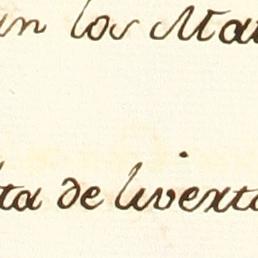 un los Mau
ta de liverta